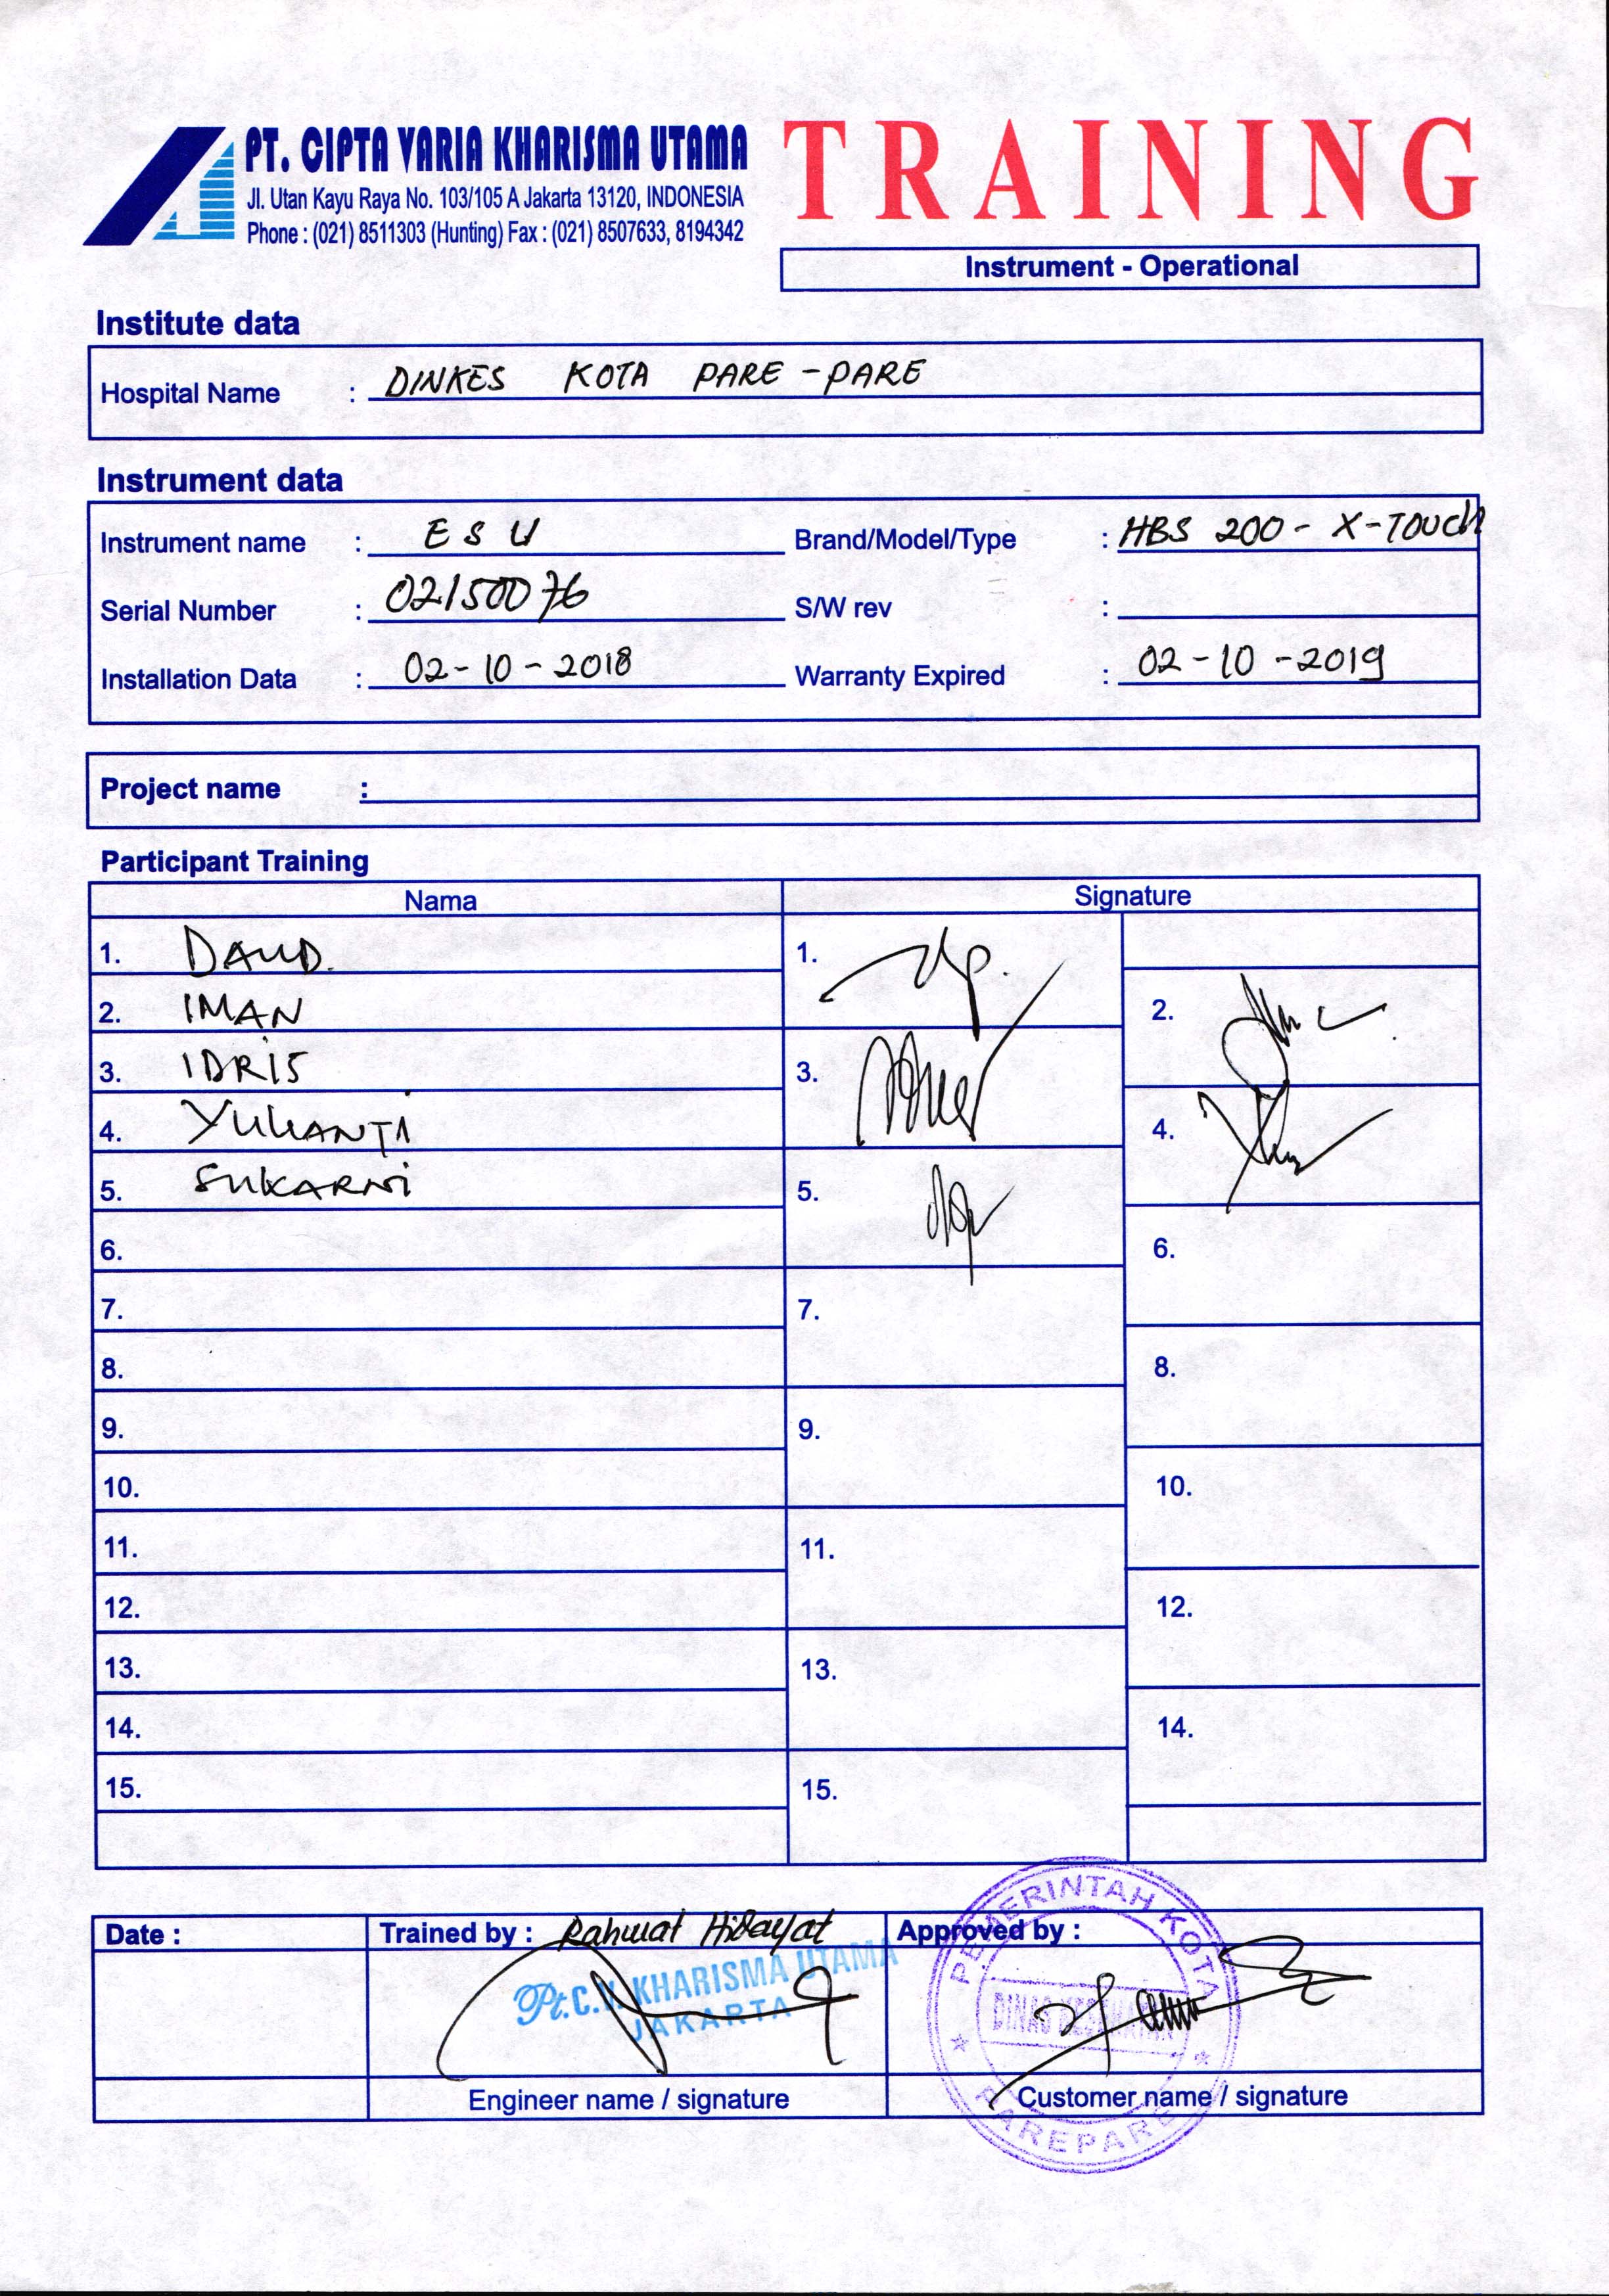 PT. CIPTA VARIA KHARISMA UTAMA
Jl. Utan Kayu Raya No. 103/105 A Jakarta 13120, INDONESIA
Phone : (021) 8511303 (Hunting) Fax : (021) 8507633, 8194342
TRAINING
Instrument - Operational
Institute data
Hospital Name : DINKES KOTA PARE-PARE
Instrument data
Instrument name : ESU Brand/Model/Type : HBS 200 - X-TOUCH
Serial Number : 02150076 S/W rev :
Installation Data : 02-10-2018 Warranty Expired : 02-10-2019
Project name :
Participant Training
Nama Signature
1. DAUD. 1.
2. IMAN 2.
3. IDRIS 3.
4. YULIANTI 4.
5. SUKARNI 5.
6. 6.
7. 7.
8. 8.
9. 9.
10. 10.
11. 11.
12. 12.
13. 13.
14. 14.
15. 15.
Date : Trained by : Rahmat Hidayat Approved by :
Pt. C.V. KHARISMA UTAMA
JAKARTA
PEMERINTAH KOTA
DINAS KESEHATAN
PAREPARE
Engineer name / signature Customer name / signature